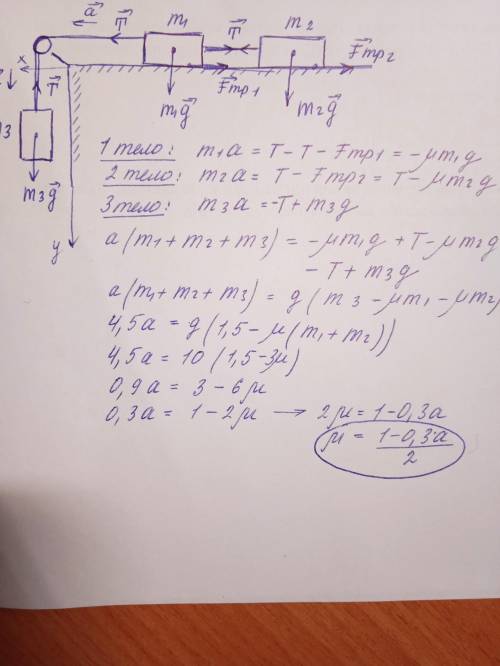 a⃗ T⃗ m₁ T⃗ m₂
x T⃗ Fтр1 Fтр2
m₁g⃗ m₂g⃗
m₃g⃗
y
1 тело: m₁a = T - T - Fтр1 = -μm₁g
2 тело: m₂a = T - Fтр2 = T - μm₂g
3 тело: m₃a = -T + m₃g
a(m₁ + m₂ + m₃) = -μm₁g + T - μm₂g
- T + m₃g
a(m₁ + m₂ + m₃) = g(m₃ - μm₁ - μm₂)
4,5a = g(1,5 - μ(m₁ + m₂))
4,5a = 10(1,5 - 3μ)
0,9a = 3 - 6μ
0,3a = 1 - 2μ → 2μ = 1 - 0,3a
μ = (1 - 0,3·a)/2